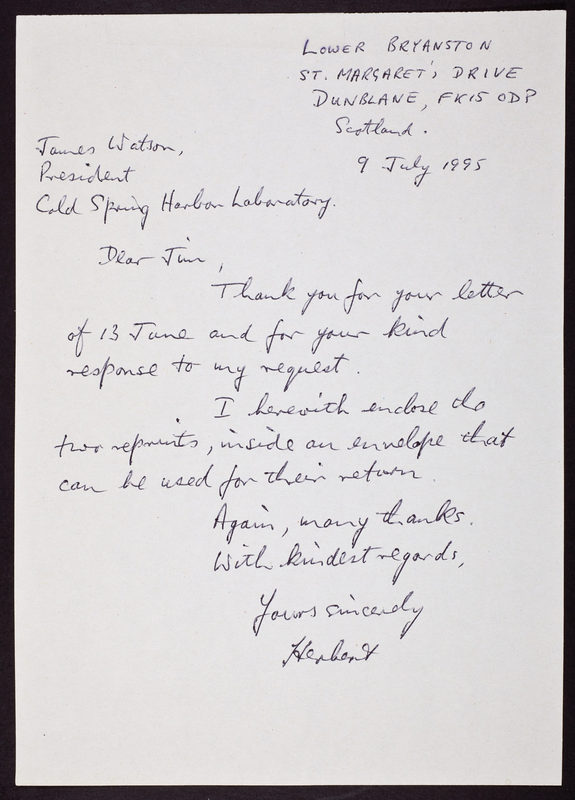 LOWER BRYANSTON
ST. MARGARET'S DRIVE
DUNBLANE, FK15 0DP
Scotland.
9 July 1995
James Watson,
President
Cold Spring Harbor Laboratory.
Dear Jim,
Thank you for your letter
of 13 June and for your kind
response to my request.
I herewith enclose the
two reprints, inside an envelope that
can be used for their return.
Again, many thanks.
With kindest regards,
Yours sincerely
Herbert